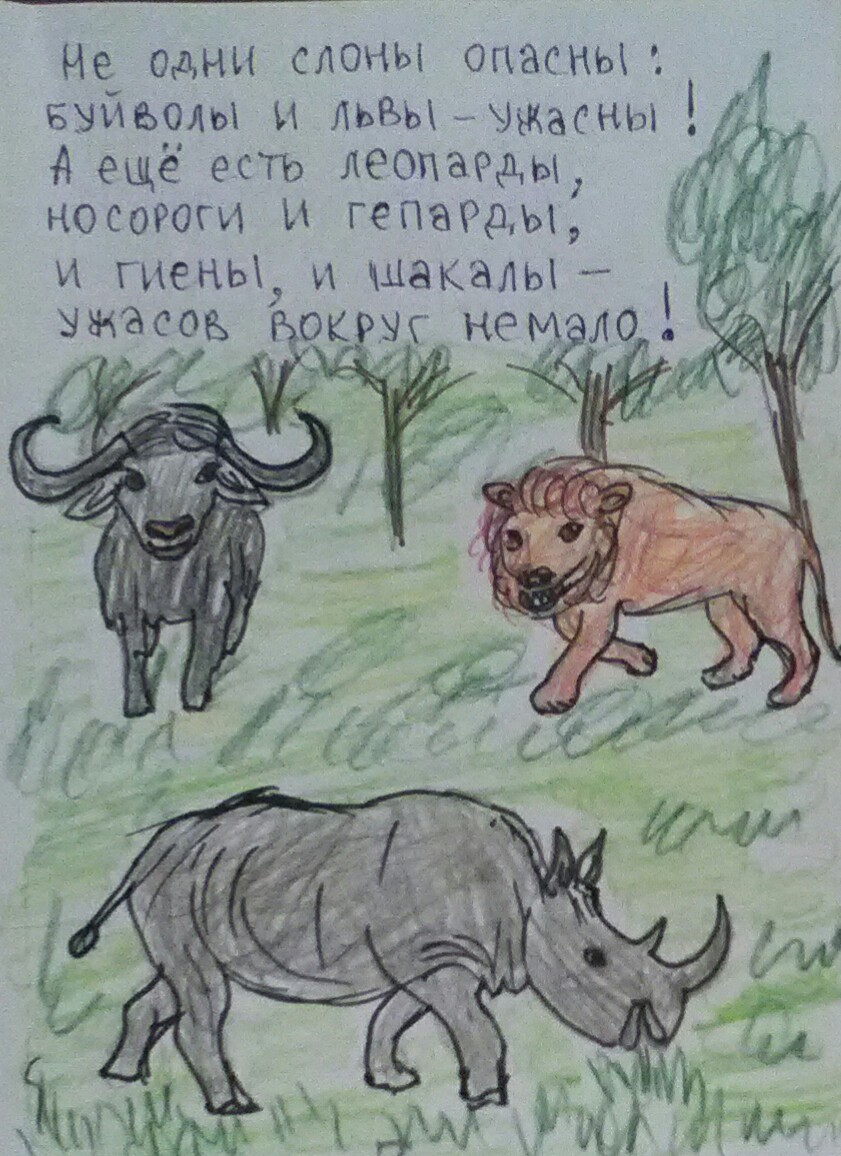 Не одни слоны опасны:
буйволы и львы – ужасны!
А ещё есть леопарды,
носороги и гепарды,
и гиены, и шакалы –
ужасов вокруг немало!